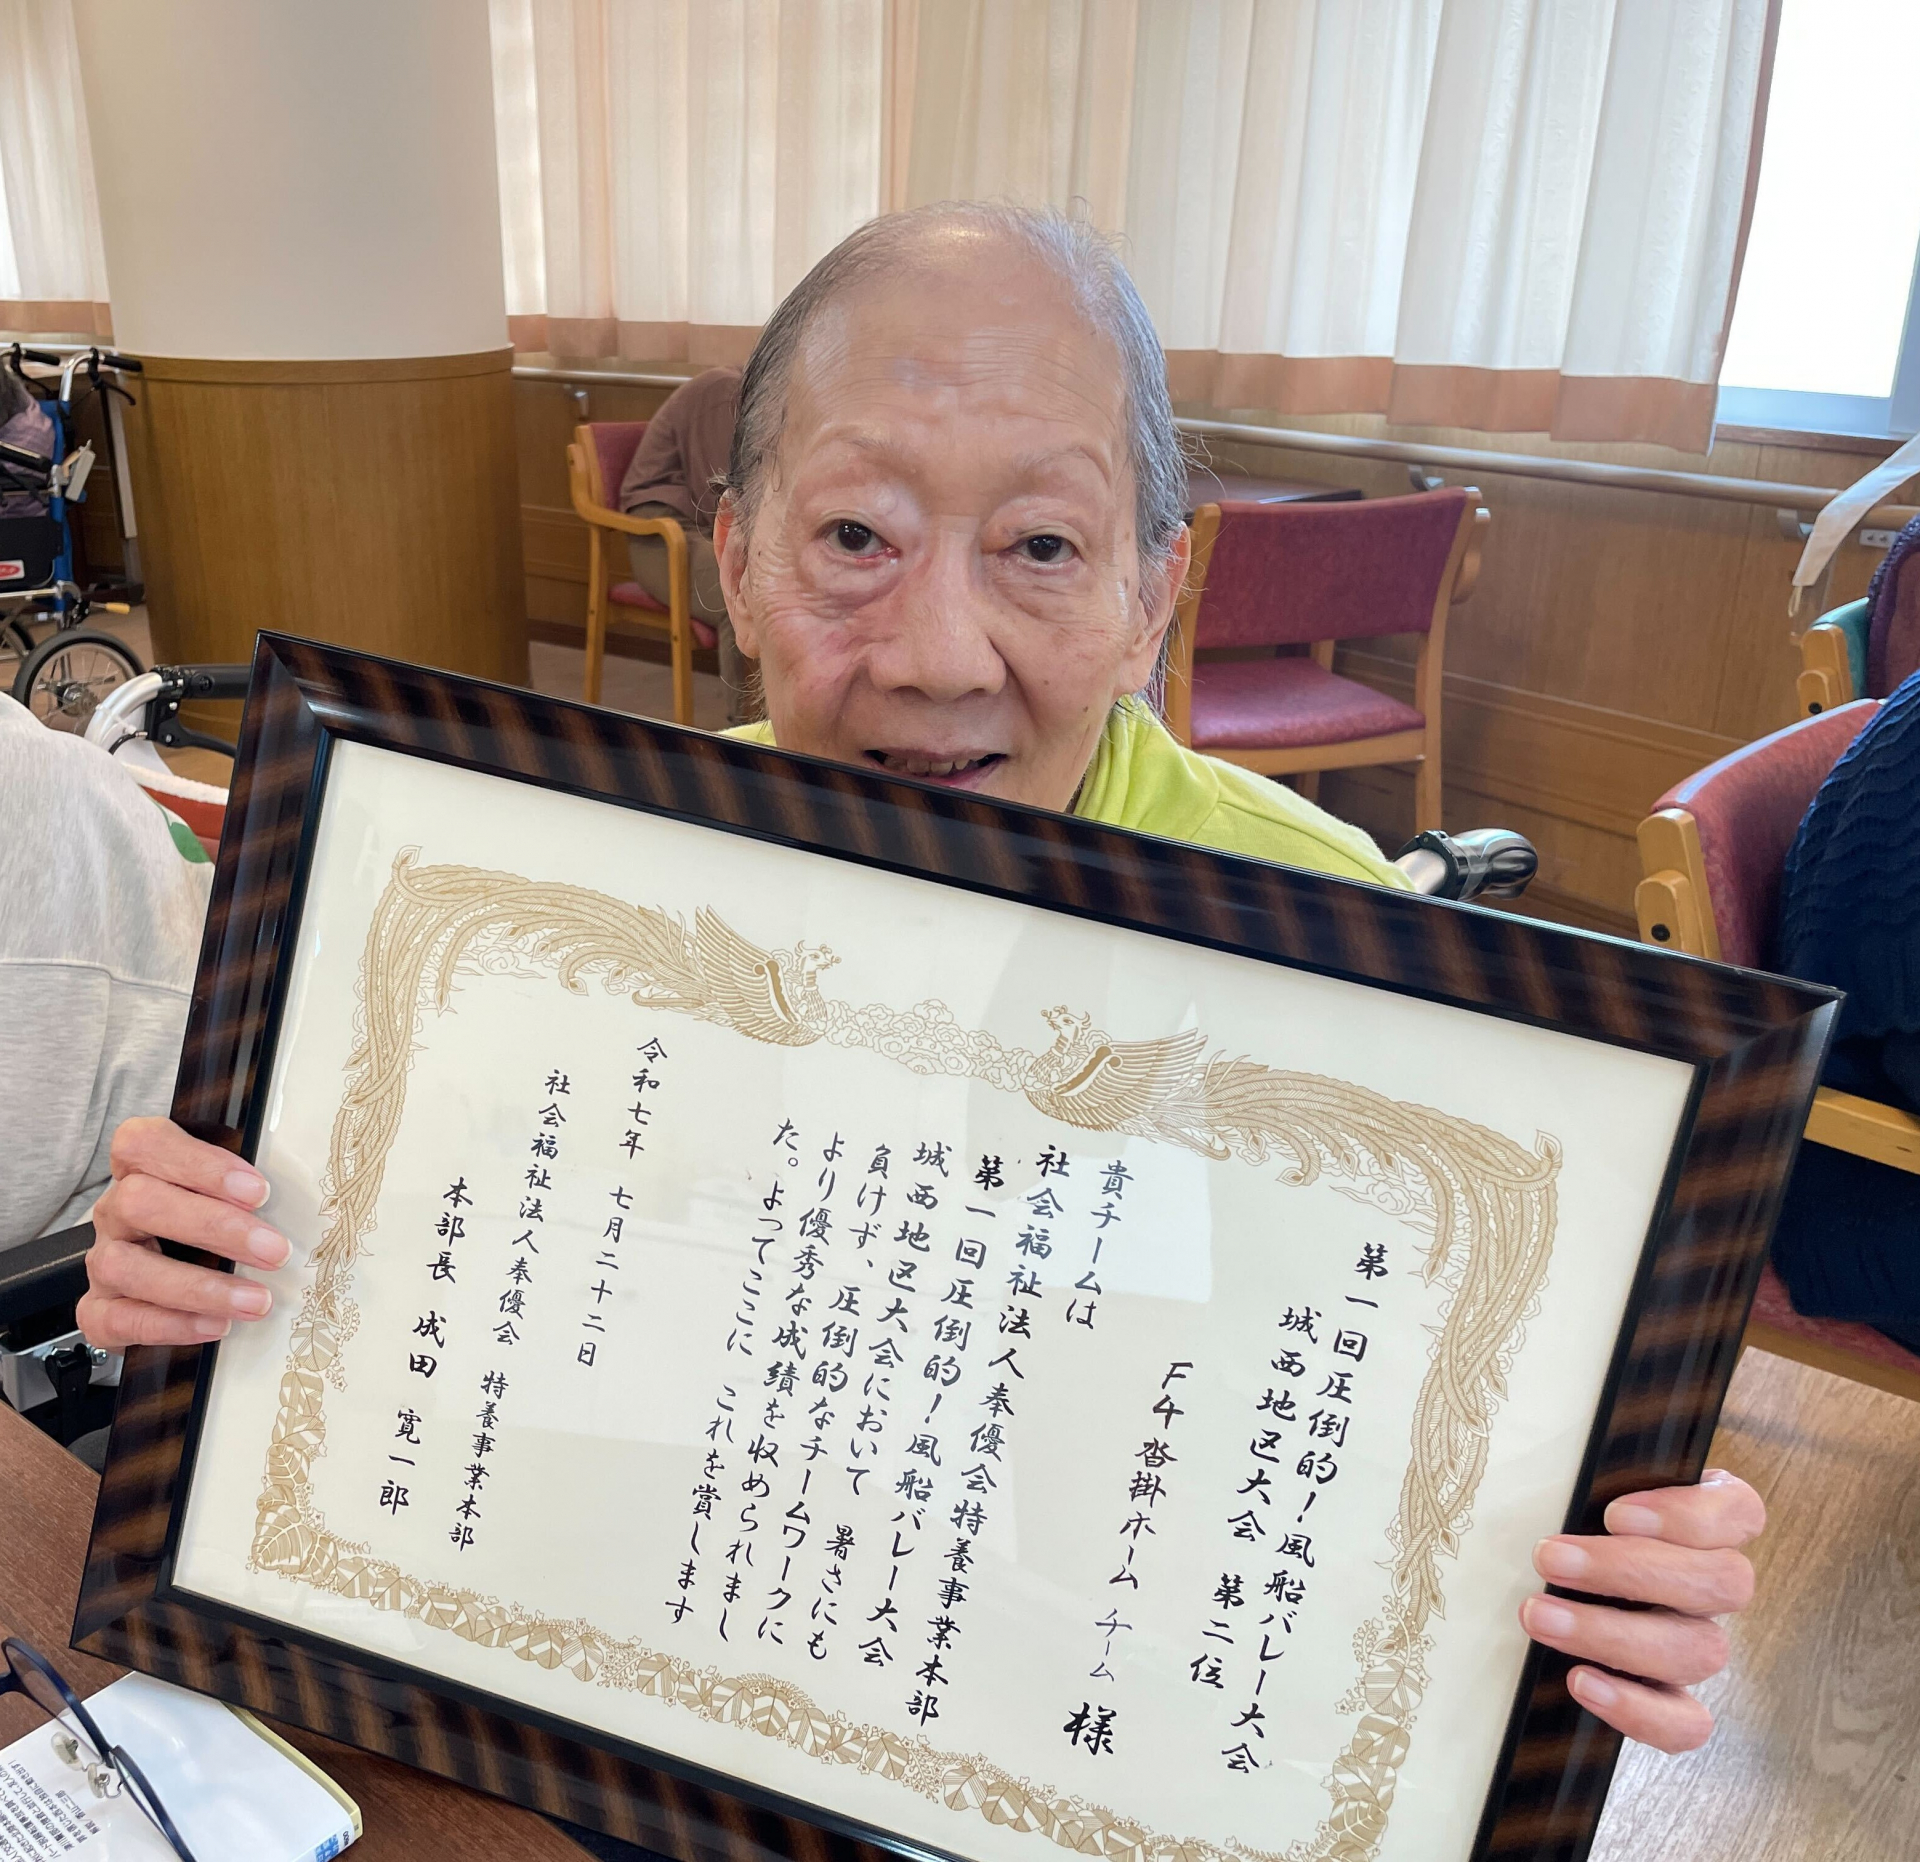 第一回圧倒的！風船バレー大会
城西地区大会 第二位
F4 沓掛ホーム チーム 様
貴チームは
社会福祉法人奉優会特養事業本部
第一回圧倒的！風船バレー大会
城西地区大会において 暑さにも
負けず、圧倒的なチームワークに
より優秀な成績を収められまし
た。よってここに これを賞します
令和七年 七月二十二日
社会福祉法人奉優会 特養事業本部
本部長 成田 寛一郎